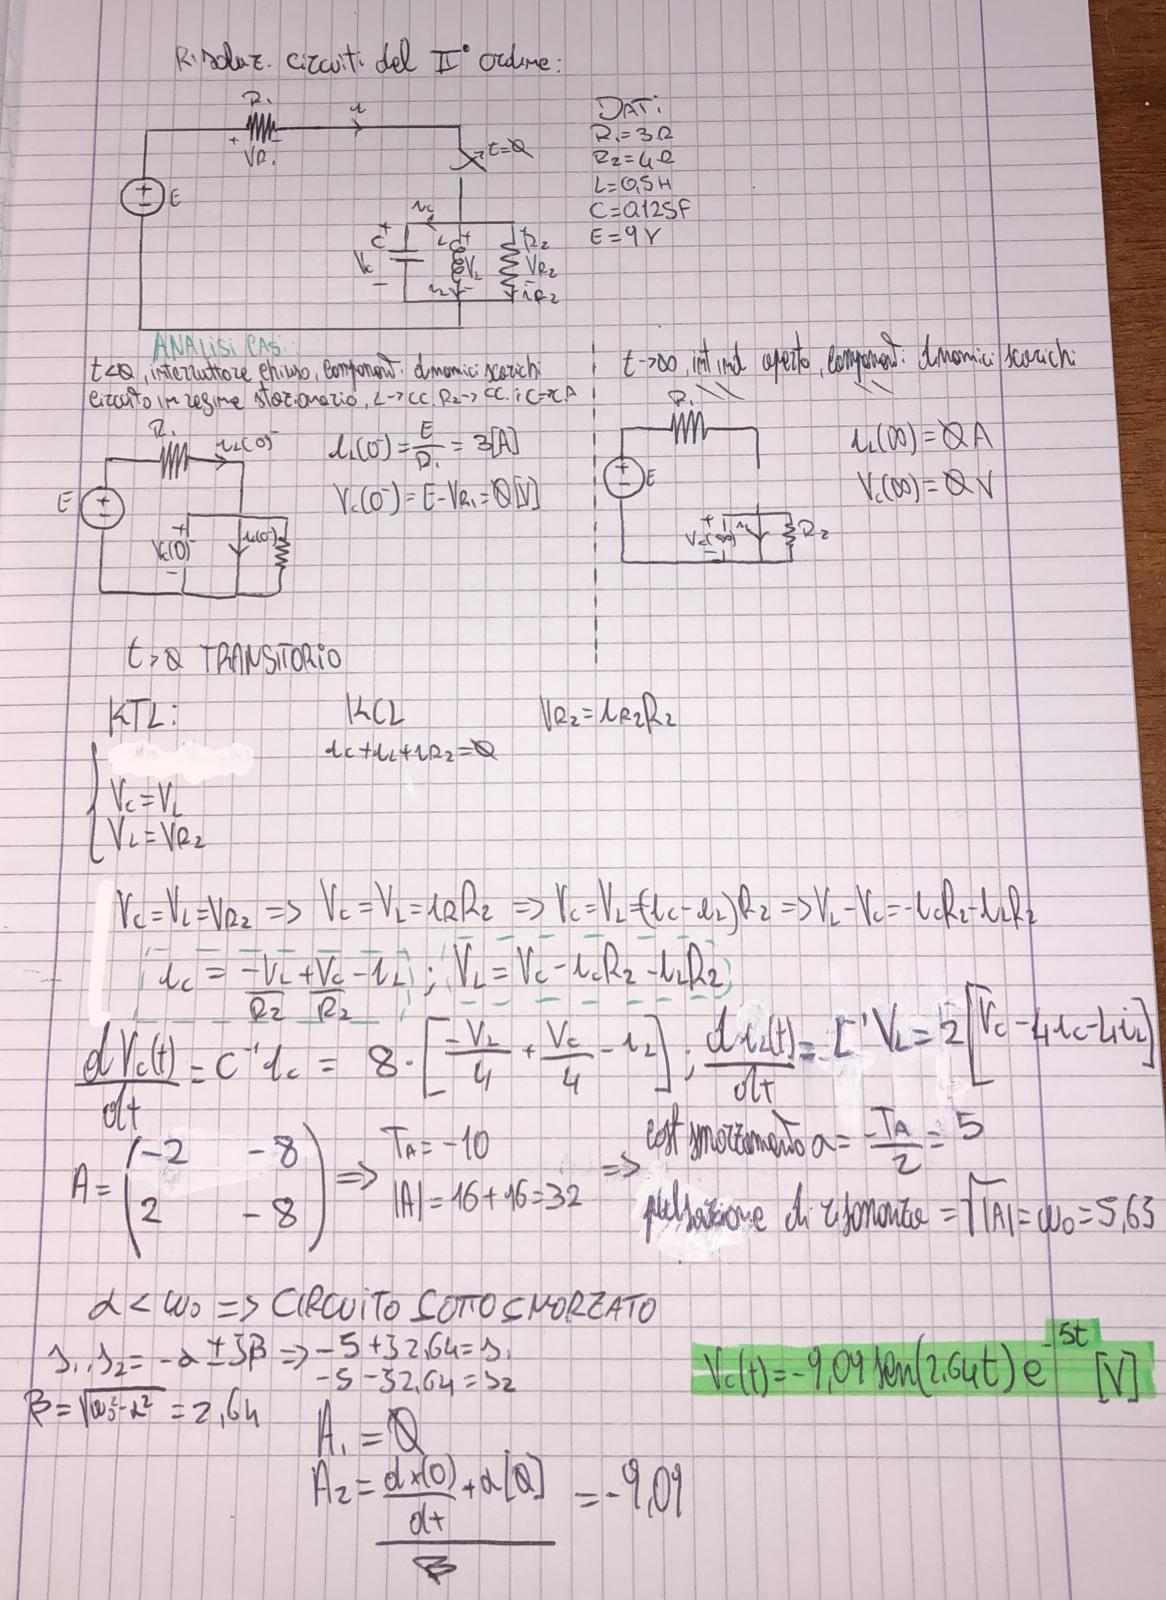 Risoluz. circuiti del II° ordine:
R₁
i
+ VR₁ -
t=0
E
DATI:
R₁=3Ω
R₂=4Ω
L=0,5H
C=0,125F
E=9V
ic
C + L + + R₂
Vc VL VR₂
- iL - - iR₂
ANALISI CASI:
t<0, interruttore chiuso, component. dinamici scarichi
circuito in regime stazionario, L->CC, R₂->CC. i C=>C.A
R₁ iL(0)⁻
E
Vc(0)⁻ iL(0⁻)
iL(0⁻)=E/R₁=3[A]
Vc(0⁻)=E-VR₁=0[V]
t->∞, int aperto, component. dinamici scarichi
R₁
E
Vc(∞) iL R₂
iL(∞)=0 A
Vc(∞)=0 V
t>0 TRANSITORIO
KTL: KCL VR₂=iR₂R₂
ic+iL+iR₂=0
Vc=VL
VL=VR₂
Vc=VL=VR₂ => Vc=VL=iRR₂ => Vc=VL=(-ic-iL)R₂ => VL-Vc=-icR₂-iLR₂
ic = -VL/R₂ + Vc/R₂ - iL ; VL=Vc-icR₂-iLR₂
dVc(t)/dt = C⁻¹ic = 8·[-VL/4 + Vc/4 - iL] ; diL(t)/dt = L⁻¹VL = 2[Vc-4ic-4iL]
A = (-2 -8
2 -8) =>
TA=-10
|A|=16+16=32
=> cost smorzamento α = -TA/2 = 5
pulsazione di risonanza = √|A| = ω₀ = 5,63
α < ω₀ => CIRCUITO SOTTOSMORZATO
s₁,s₂ = -α ± Jβ => -5+J2,64=s₁
-5-J2,64=s₂
β=√ω₀²-α² = 2,64
Vc(t)=-9,09 sen(2,64t) e⁻⁵ᵗ [V]
A₁=0
A₂= dx(0)/dt + α[0] / β = -9,09